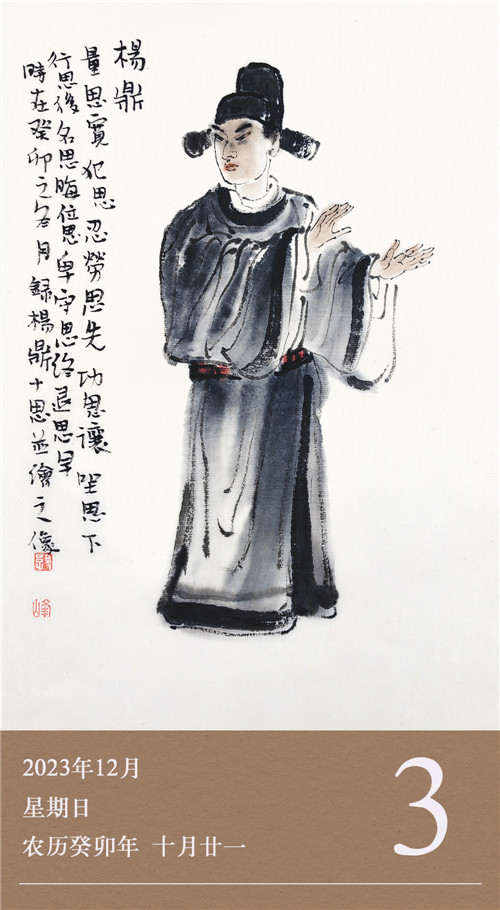 楊鼎
量思寬犯思忍勞思先功思讓坐思下
行思後名思晦位思卑守思終退思早
時在癸卯之冬月錄楊鼎十思並繪之像
峰
2023年12月
星期日
农历癸卯年 十月廿一
3